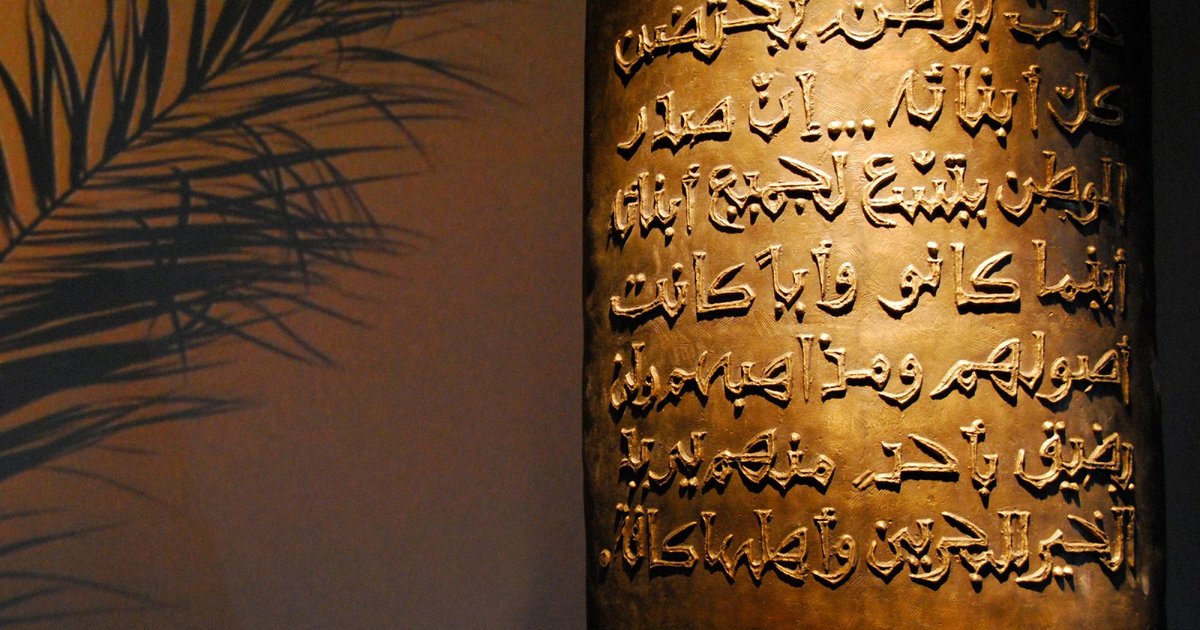 طبت بوطن يحتضن
كلّ أبنائه ... إنّ صدر
الوطن يتسّع لجميع أبنائه
أينما كانو وأياً كانت
أصولهم ومذاهبهم ولن
يضيق بأحدٍ منهم يريد
الخير للبحرين وأهلها كافة.